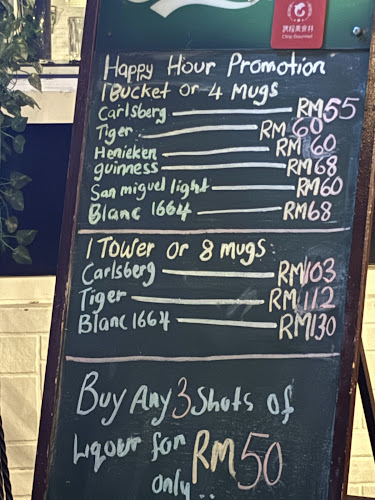 Happy Hour Promotion
1 Bucket or 4 Mugs
Carlsberg RM55
Tiger RM 60
Henieken RM 60
guinness RM68
San miguel light RM60
Blanc 1664 RM68
1 Tower or 8 mugs:
Carlsberg RM103
Tiger RM 112
Blanc 1664 RM130
Buy Any 3 Shots of
Liqour for RM50
only..